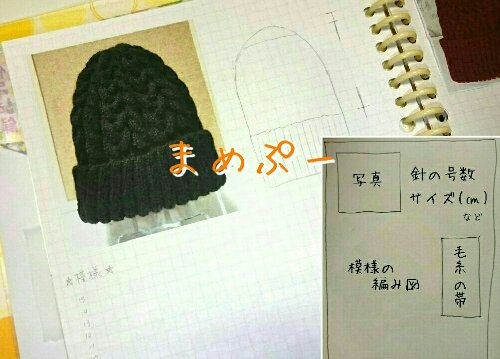 まめぷー
写真
針の号数
サイズ(cm)
など
模様の
編み図
毛糸の帯
☆模様☆